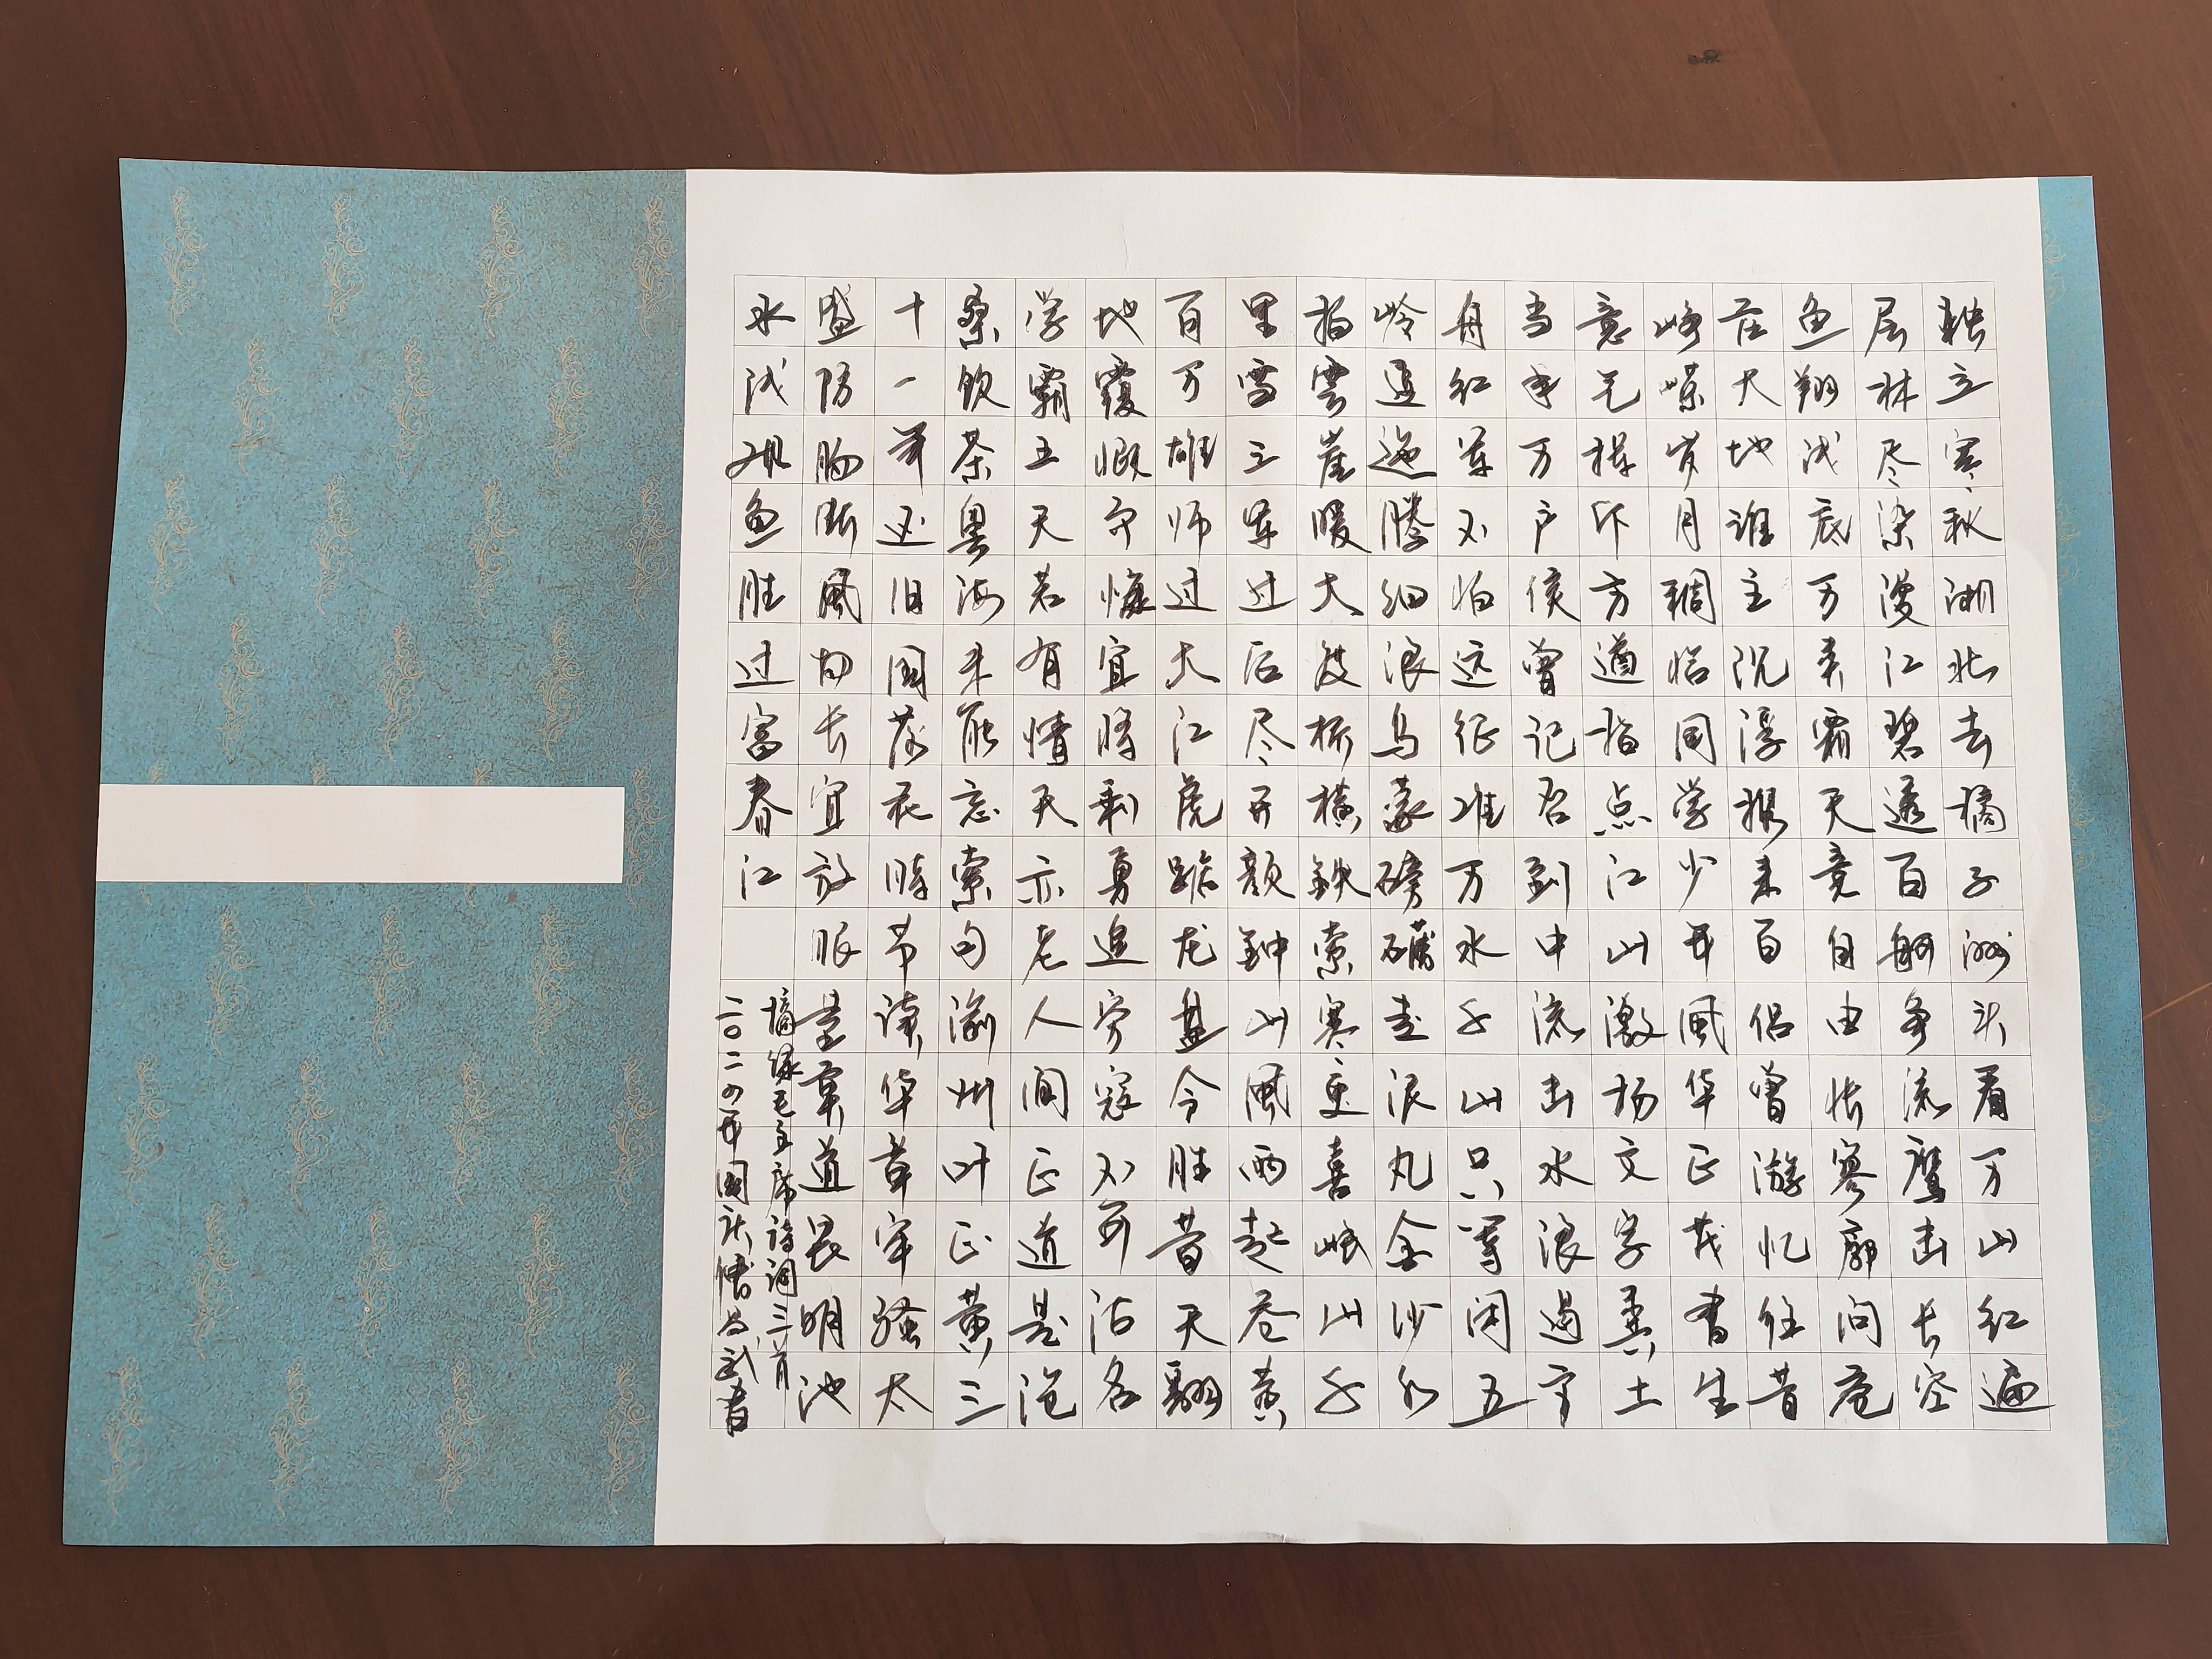 独立寒秋湘北去橘子洲头看万山红遍
层林尽染漫江碧透百舸争流鹰击长空
鱼翔浅底万类霜天竞自由怅寥廓问苍
茫大地谁主沉浮携来百侣曾游忆往昔
峥嵘岁月稠恰同学少年风华正茂书生
意气挥斥方遒指点江山激扬文字粪土
当年万户侯曾记否到中流击水浪遏飞
舟红军不怕远征难万水千山只等闲五
岭逶迤腾细浪乌蒙磅礴走泥丸金沙水
拍雲崖暖大渡桥横铁索寒更喜岷山千
里雪三军过后尽开颜钟山风雨起苍黄
百万雄师过大江虎踞龙盘今胜昔天翻
地覆慨而慷宜将剩勇追穷寇不可沽名
学霸王天若有情天亦老人间正道是沧
桑饮茶粤海未能忘索句渝州叶正黄三
十一年还旧国落花时节读华章牢骚太
盛防肠断风物长宜放眼量莫道昆明池
水浅观鱼胜过富春江
摘录毛主席诗词三首
二〇二四年国庆